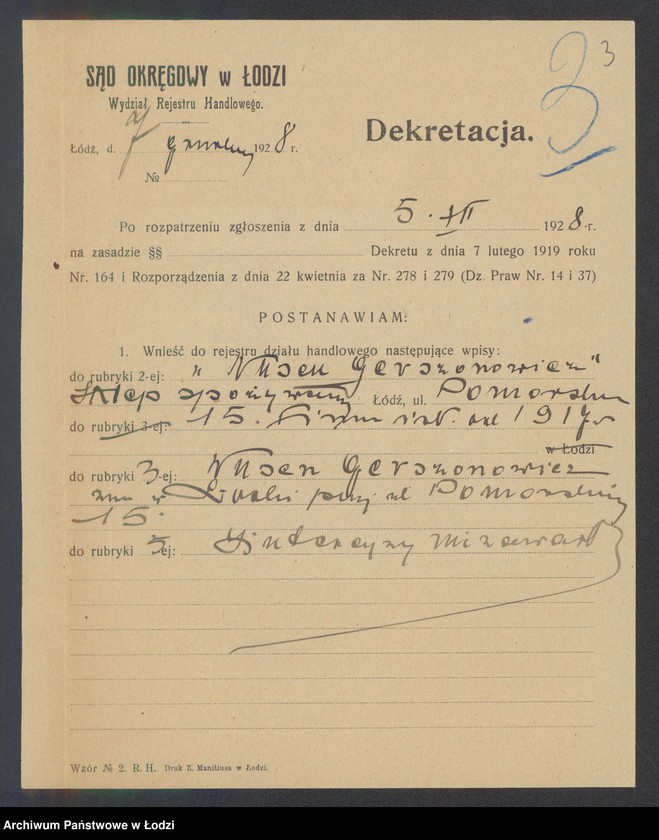 3
3
SĄD OKRĘGOWY w ŁODZI
Wydział Rejestru Handlowego.
Dekretacja.
Łódź, d. 7 grudnia 1928 r.
№
Po rozpatrzeniu zgłoszenia z dnia 5. XII 1928 r.
na zasadzie §§ Dekretu z dnia 7 lutego 1919 roku
Nr. 164 i Rozporządzenia z dnia 22 kwietnia za Nr. 278 i 279 (Dz. Praw Nr. 14 i 37)
POSTANAWIAM:
1. Wnieść do rejestru działu handlowego następujące wpisy:
do rubryki 2-ej: „Nusen Gerszonowicz"
Sklep spożywczy Łódź, ul. Pomorska
do rubryki 3-ej: 15. Firma istn. od 1917 r
w Łodzi
do rubryki 3-ej: Nusen Gerszonowicz
zam w Łodzi przy ul Pomorskiej
15.
do rubryki 5ej: Intercyzy nie zawarł
Wzór № 2. R. H. Druk Z. Manitiusa w Łodzi.
Archiwum Państwowe w Łodzi